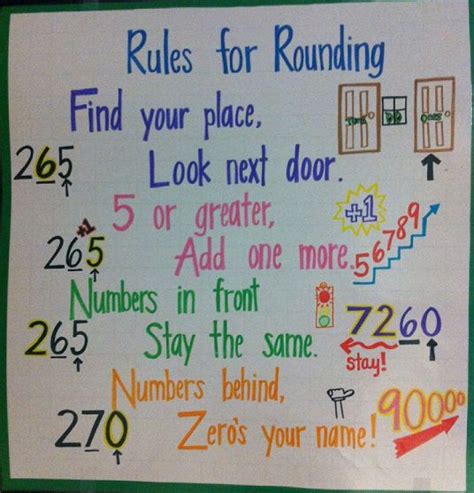 Rules for Rounding
Find your place,
Tens Ones
265
Look next door.
5 or greater,
+1
+1
265
Add one more.
5 6 7 8 9
Numbers in front
265
Stay the same.
7260
stay!
Numbers behind,
270
Zero's your name!
90000